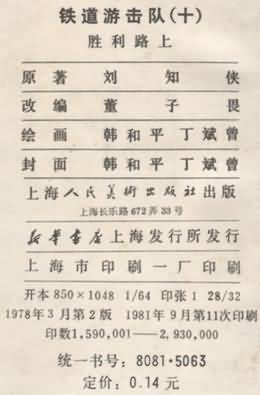 铁道游击队(十)
胜利路上
原著 刘知侠
改编 董子畏
绘画 韩和平 丁斌曾
封面 韩和平 丁斌曾
上海人民美術出版社出版
上海长乐路672弄33号
新华书店上海发行所发行
上海市印刷一厂印刷
开本850×1048 1/64 印张1 28/32
1978年3月第2版 1981年9月第11次印刷
印数1,590,001——2,930,000
统一书号:8081·5063
定价:0.14元